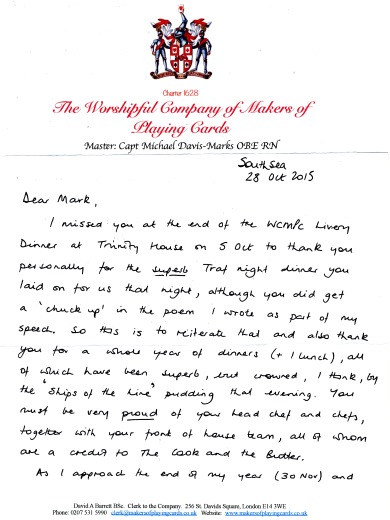 Charter 1628
The Worshipful Company of Makers of
Playing Cards
Master: Capt Michael Davis-Marks OBE RN
Southsea
28 Oct 2015
Dear Mark,
I missed you at the end of the WCMPC Livery
Dinner at Trinity House on 5 Oct to thank you
personally for the superb Traf night dinner you
laid on for us that night, although you did get
a 'chuck up' in the poem I wrote as part of my
speech. So this is to reiterate that and also thank
you for a whole year of dinners (+ 1 lunch), all
of which have been superb, and crowned, I think, by
the 'Ships of the Line' pudding that evening. You
must be very proud of your head chef and chefs,
together with your front of house team, all of whom
are a credit to The Cook and the Butler.
As I approach the end of my year (30 Nov) and
David A Barrett BSc. Clerk to the Company. 256 St. Davids Square, London E14 3WE
Phone: 0207 531 5990 clerk@makersofplayingcards.co.uk Website: www.makersofplayingcards.co.uk